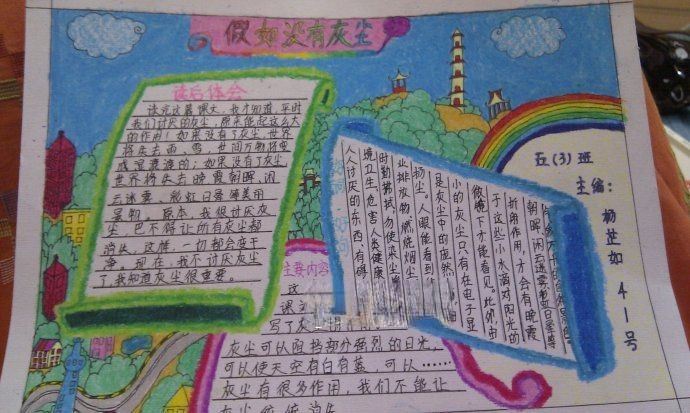 假如没有灰尘
读后体会
读完这篇课文，我才知道，平时
我们讨厌的灰尘，原来能起这么大
的作用！如果没有了灰尘，世界
将失去雨、雪，世间万物将变
成湿漉漉的；如果没有了灰尘，
世界将失去晚霞朝晖、闲
云迷雾、彩虹日晕等美丽
景物。原本，我很讨厌灰
尘，巴不得让所有灰尘都
消失，这样，一切都会变干
净。现在，我不讨厌灰尘
了，我知道灰尘很重要。
人人讨厌的东西，有碍
境卫生，危害人类健康
时勤拂拭，勿使染尘埃
业排放物，燃烧烟尘
扬尘。人眼能看到
是灰尘中的庞然
小的灰尘只有在电子显
微镜下才能看见。此外，由
于这些小水滴对阳光的
折射作用，才会有晚霞
朝晖、闲云迷雾、彩虹日晕等
五(3)班
主编：
杨芷如
41号
主要内容
这
课
写了灰
灰尘可以阻挡部分强烈的日光，
可以使天空有白有蓝，可以……
灰尘有很多作用，我们不能让
灰尘统统消失